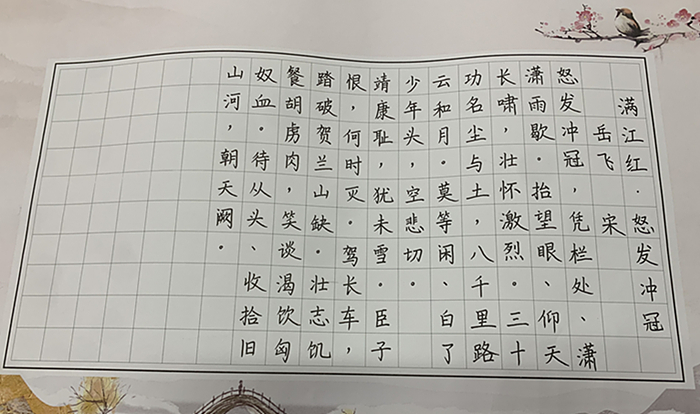 满江红·怒发冲冠
岳飞 宋
怒发冲冠，凭栏处、潇
潇雨歇。抬望眼、仰天
长啸，壮怀激烈。三十
功名尘与土，八千里路
云和月。莫等闲、白了
少年头，空悲切。
靖康耻，犹未雪。臣子
恨，何时灭。驾长车，
踏破贺兰山缺。壮志饥
餐胡虏肉，笑谈渴饮匈
奴血。待从头、收拾旧
山河，朝天阙。